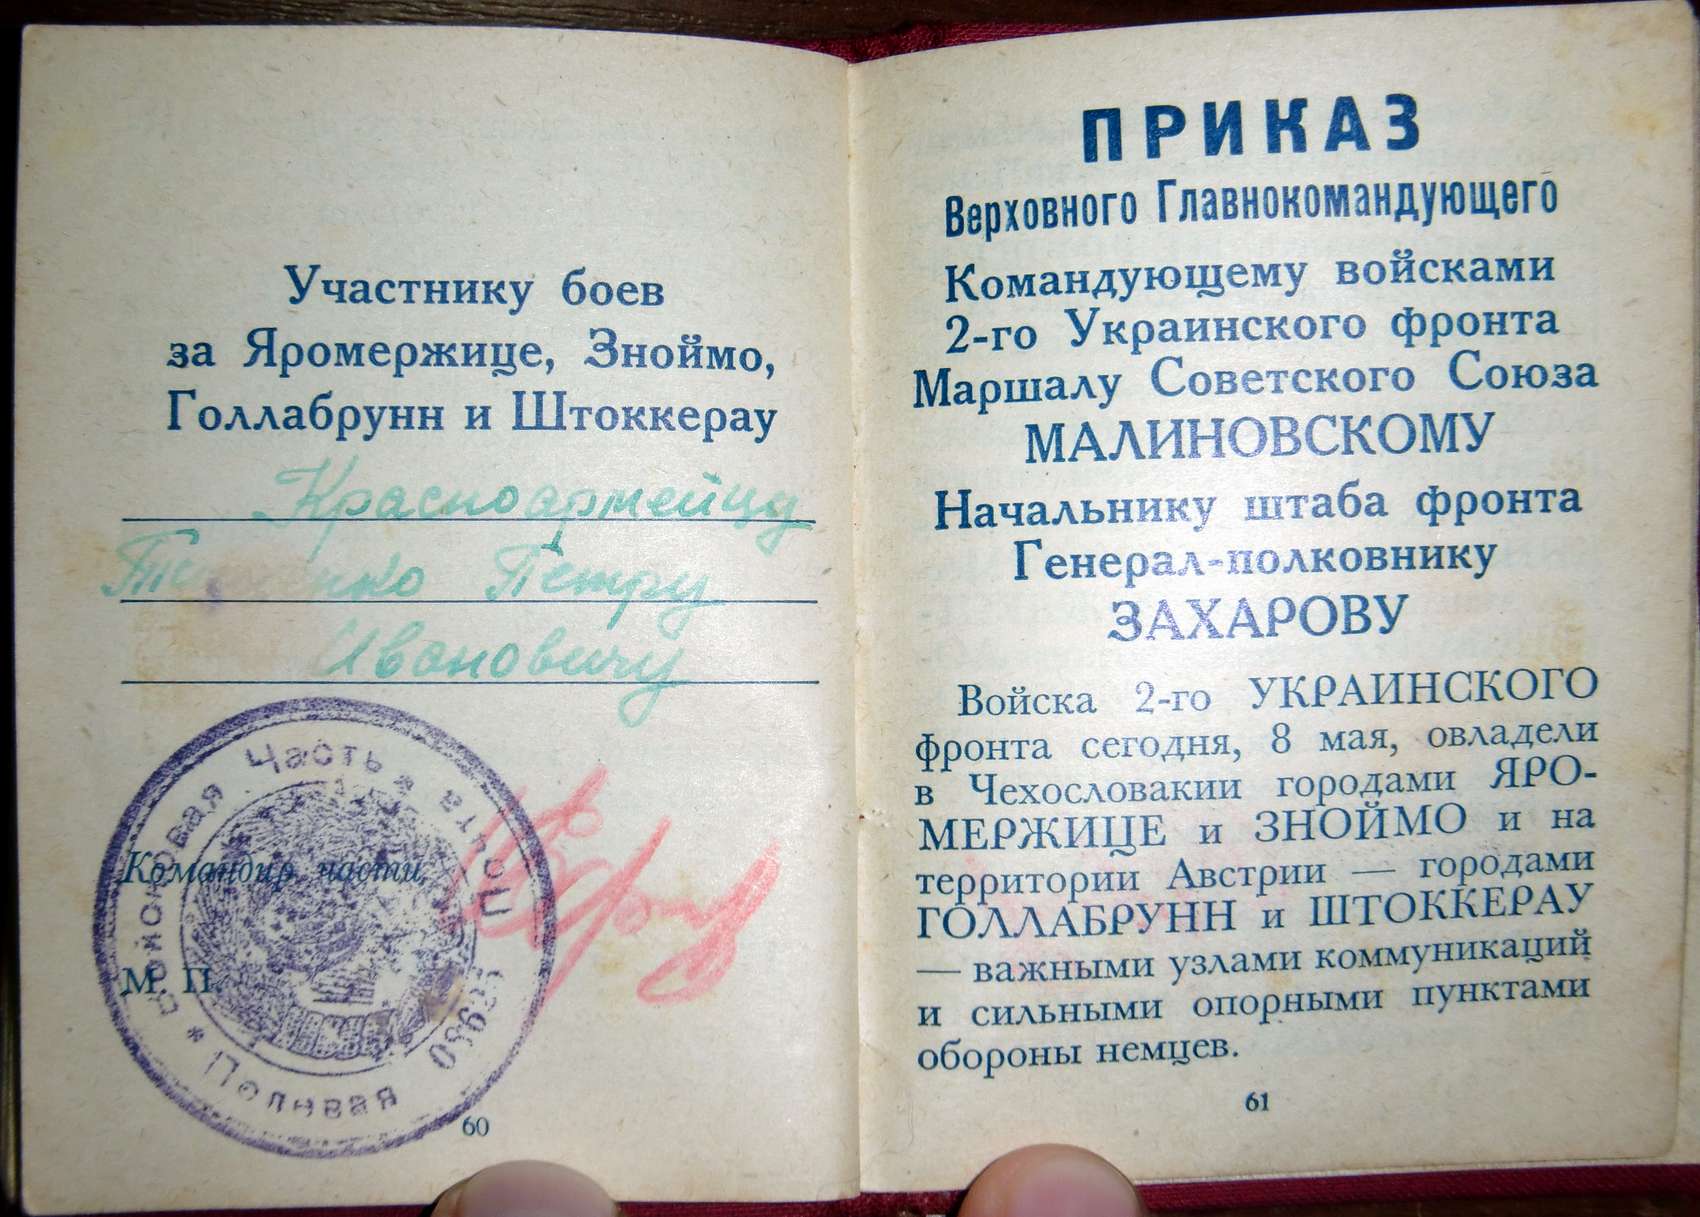 Участнику боев
за Яромержице, Зноймо,
Голлабрунн и Штоккерау
Красноармейцу
Петру
Ивановичу
Командир части
М. П.
* Войсковая Часть * Полевая Почта
60
ПРИКАЗ
Верховного Главнокомандующего
Командующему войсками
2-го Украинского фронта
Маршалу Советского Союза
МАЛИНОВСКОМУ
Начальнику штаба фронта
Генерал-полковнику
ЗАХАРОВУ
Войска 2-го УКРАИНСКОГО
фронта сегодня, 8 мая, овладели
в Чехословакии городами ЯРО-
МЕРЖИЦЕ и ЗНОЙМО и на
территории Австрии — городами
ГОЛЛАБРУНН и ШТОККЕРАУ
— важными узлами коммуникаций
и сильными опорными пунктами
обороны немцев.
61